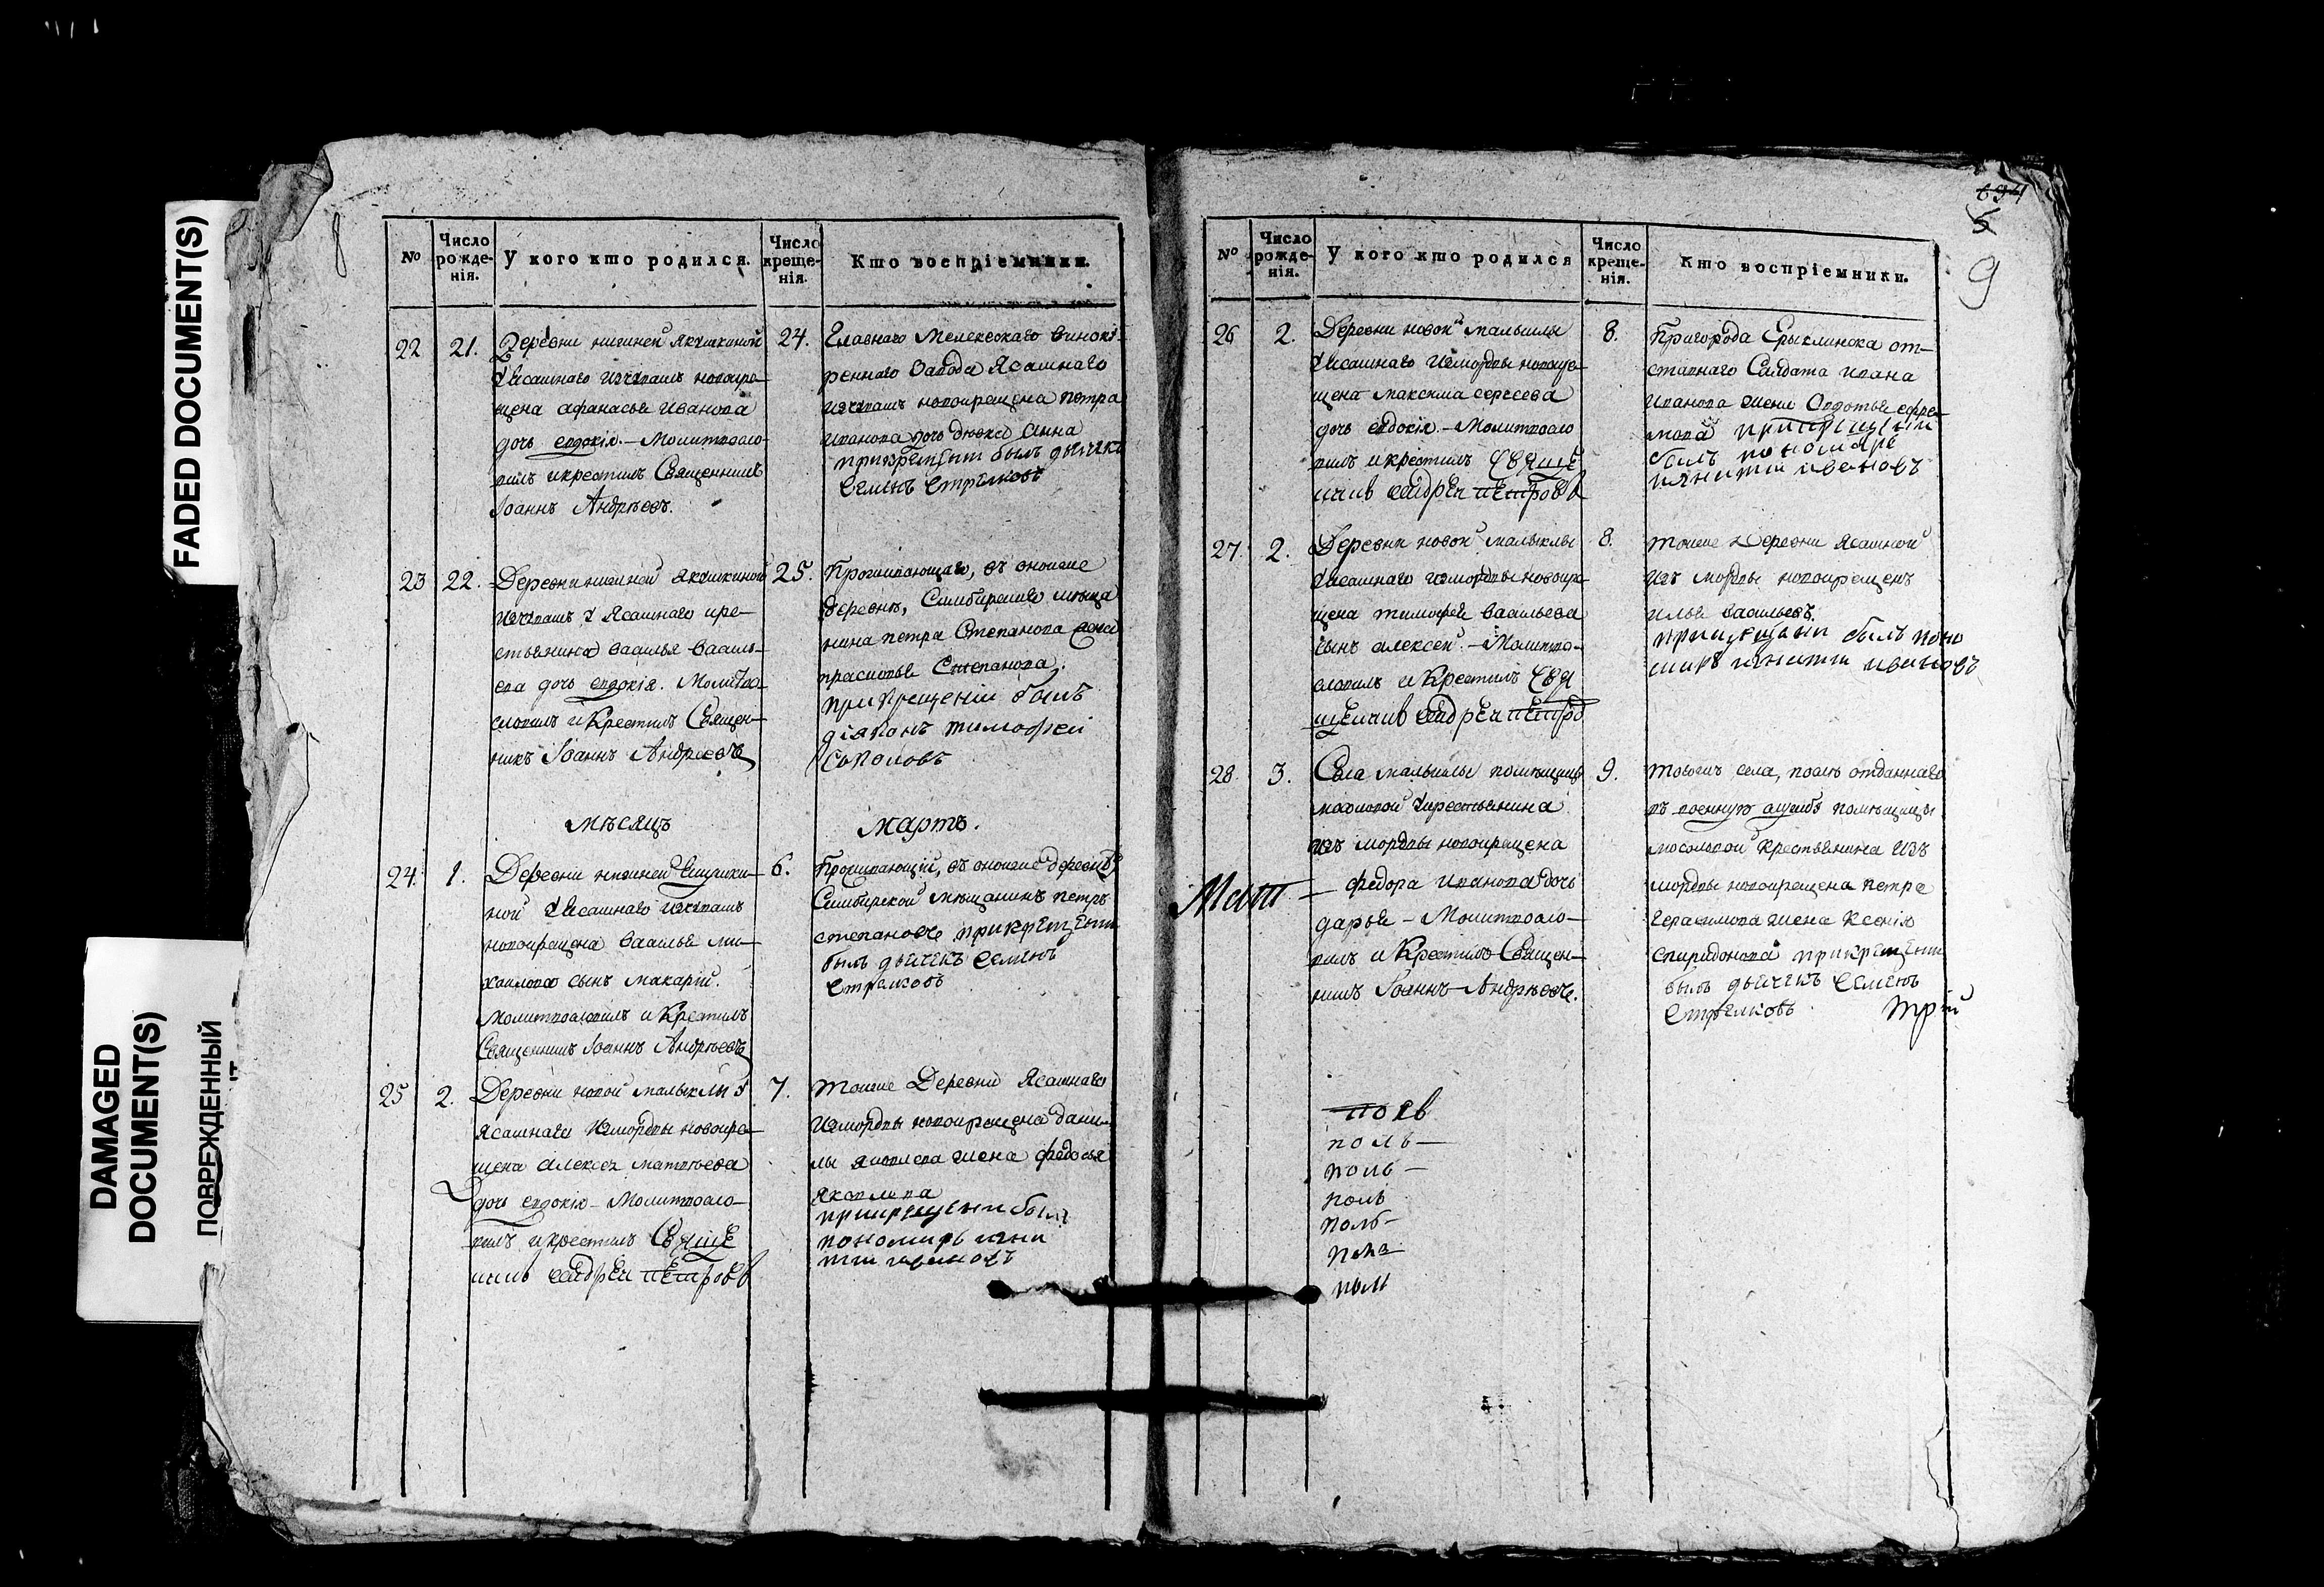 FADED DOCUMENT(S)
DAMAGED
DOCUMENT(S)
ПОВРЕЖДЕННЫЙ
8
№
Число рожде-нія.
У кого кто родился.
Число креще-нія.
Кто воспріемники.
22
21.
Деревни нижней Якушкиной
Ясашнаго изчувашъ новокре-
щена афанасья Иванова
дочь евдокія. – Молитвосло-
вилъ икрестилъ Священникъ
Іоаннъ Андрѣевъ.
24.
Главнаго Мелекескаго виноку-
реннаго Завода Ясашнаго
изчувашъ новокрещена петра
иванова дочь девка Анна
прикрещении былъ дьячекъ
Семенъ Стрелковъ
23
22.
Деревни нижней Якушкиной
изчувашъ Ясашнаго кре-
стьянина василья василь-
ева дочь евдокія. Молитво-
словилъ и Крестилъ Священ-
никъ Іоаннъ Андреевъ
25.
Проживающаго, въ оной же
деревнѣ, Симбирскаго мѣща
нина петра Степанова жена
прасковья Степанова.
при крещеніи былъ
діаконъ тимофей
Соколовъ
мѣсяцъ
мартъ.
24.
1.
Деревни нижней Якушки-
ной Ясашнаго изчувашъ
новокрещена василья ми-
хаилова сынъ макарій.
Молитвословилъ и Крестилъ
Священникъ Іоаннъ Андрѣевъ
6.
Проживающій, въ оной же деревнѣ,
Симбирской мещанинъ петръ
степановъ прикрещении
былъ дьячекъ Семенъ
Стрелковъ
25
2.
Деревни новой малыклы
Ясашнаго измордвы новокре-
щена алексея матвѣева
дочь евдокія – Молитвосло-
вилъ икрестилъ Свяще
никъ андрей петровъ
7.
тойже Деревни Ясашнаго
измордвы новокрещена дани-
лы яковлева жена федосья
яковлева
прикрещении былъ
пономарь ики
тин ивановъ
5
9
№
Число рожде-нія.
У кого кто родился
Число креще-нія.
Кто воспріемники.
26
2.
Деревни новой малыклы
Ясашнаго измордвы новокре-
щена максима сергеева
дочь евдокія – Молитвосло
вилъ икрестилъ Свяще
никъ андрей петровъ
8.
Пригорода Ерыклинска от-
ставнаго Салдата ивана
иванова жена Авдотья ефре-
мова прикрещении
былъ пономарь
никити ивановъ
27.
2.
Деревни новой малыклы
Ясашнаго измордвы новокре-
щена тимофея васильева
сынъ алексей. – Молитво-
словилъ и Крестилъ Свя
щеникъ андрей петро
8.
тойже Деревни Ясашной
изъ мордвы новокрещенъ
илья васильевъ.
прикрещении былъ поно
марь никити ивановъ
28.
3.
Села малыклы помещицы
мосоловой Крестьянина
изъ мордвы новокрещена
федора иванова дочь
дарья – Молитвосло-
вилъ и Крестилъ Священ-
никъ Іоаннъ Андрѣевъ.
9.
тогожъ села, послѣ отданнаго
въ военную службу помещицы
мосоловой Крестьянина изъ
мордвы новокрещена петра
герасимова жена Ксенія
спиридонова прикрещении
былъ дьячекъ Семенъ
Стрелковъ.
трій
поль
поль
поль
поль